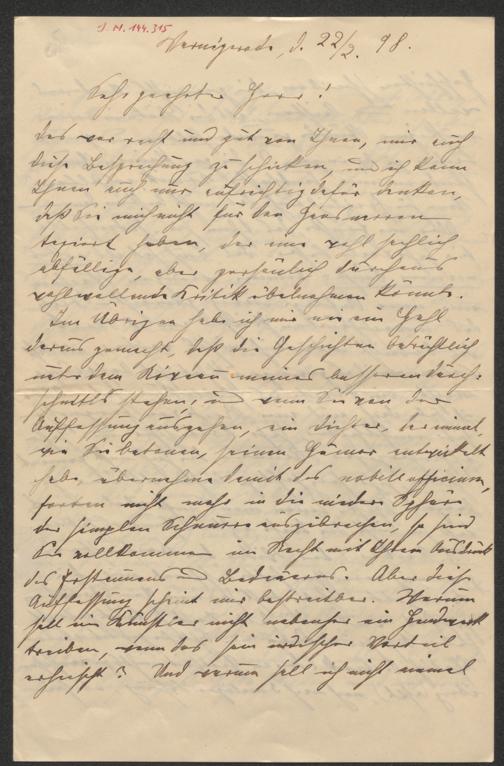 J. N. 144.315
Wernigerode, d. 22/2. 98.
Sehr geehrter Herr!
das war recht und gut von Ihnen, mir auch
diese Besprechung zu schicken, und ich kann
Ihnen auch nur aufrichtig dafür danken,
daß Sie mich nicht für den
taxiert haben, der eine wohl sachlich
abfällige, aber persönlich durchaus
wohlwollende Kritik übelnehmen könnte.
Im Übrigen habe ich mir nie ein Hehl
daraus gemacht, daß die Geschichten beträchtlich
unter dem Niveau meines besseren Durch-
schnitts stehen; und wenn Sie von der
Auffassung ausgehen, ein Dichter, der einmal,
wie Sie betonen, seinen Humor entwickelt
habe, übernehme damit das nobile officium,
fortan nicht mehr in die niedere Sphäre
der simplen Schnurre auszubrechen, so sind
Sie vollkommen im Recht mit Ihrem Ausdruck
des Erstaunens und Bedauerns. Aber diese
Auffassung scheint mir bestreitbar. Warum
soll ein Künstler nicht nebenher ein Handwerk
treiben, wenn das sein irdischer Vorteil
erheischt? Und warum soll ich nicht einmal